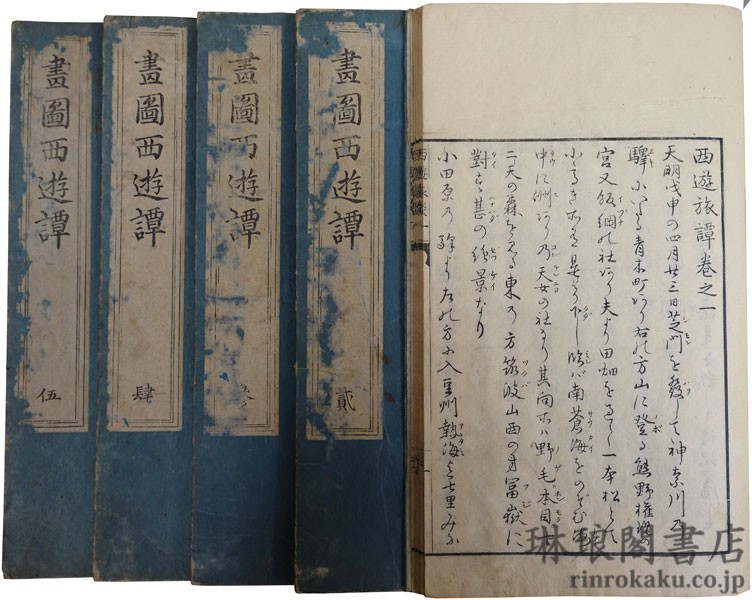 西遊旅譚卷之一
天明戊申の四月廿三日芝門を發して神奈川の
驛にいたる青木町あり右の方山に登る熊野権現の
宮又飯綱の社あり夫より田畑を 一本松といふ
小 き 臨バ南蒼海をのぞむ
中に洲あり乃天女の社あり其向ふハ野毛本目
二天の森を見る東の方筑波山西の方冨嶽に
對す甚の絶景なり
小田原の驛より右の方に入豆州熱海 七里
畫圖西遊譚
貳
畫圖西遊譚
畫圖西遊譚
肆
畫圖西遊譚
伍
琳琅閣書店
rinrokaku.co.jp